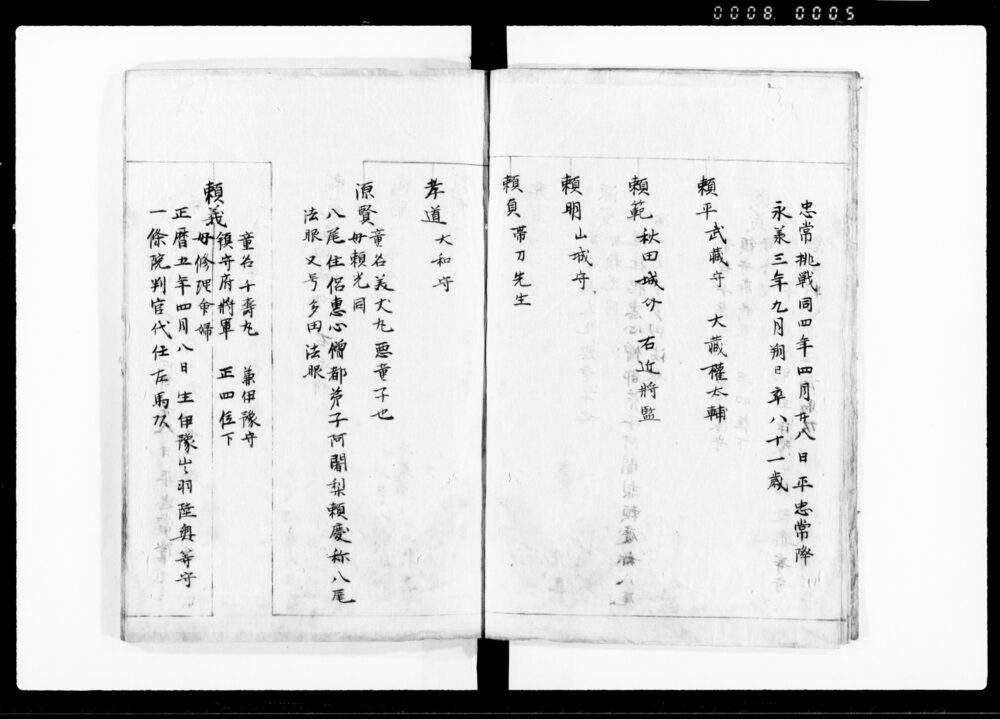 0008 0005
忠常挑戦同四年四月廿八日平忠常降
永承三年九月朔日卒八十一歳
頼平 武蔵守 大蔵権太輔
頼範 秋田城介 右近将監
頼明 山城守
頼貞 帯刀先生
孝道 大和守
源賢 童名美丈丸悪童子也
母頼光同
八尾住侶恵心僧都弟子阿闍梨頼慶称八尾
法眼又号多田法眼
童名千壽丸 兼伊豫守
頼義 鎮守府将軍 正四位下
母修理命婦
正暦五年四月八日生伊豫出羽陸奥等守
一條院判官代任左馬